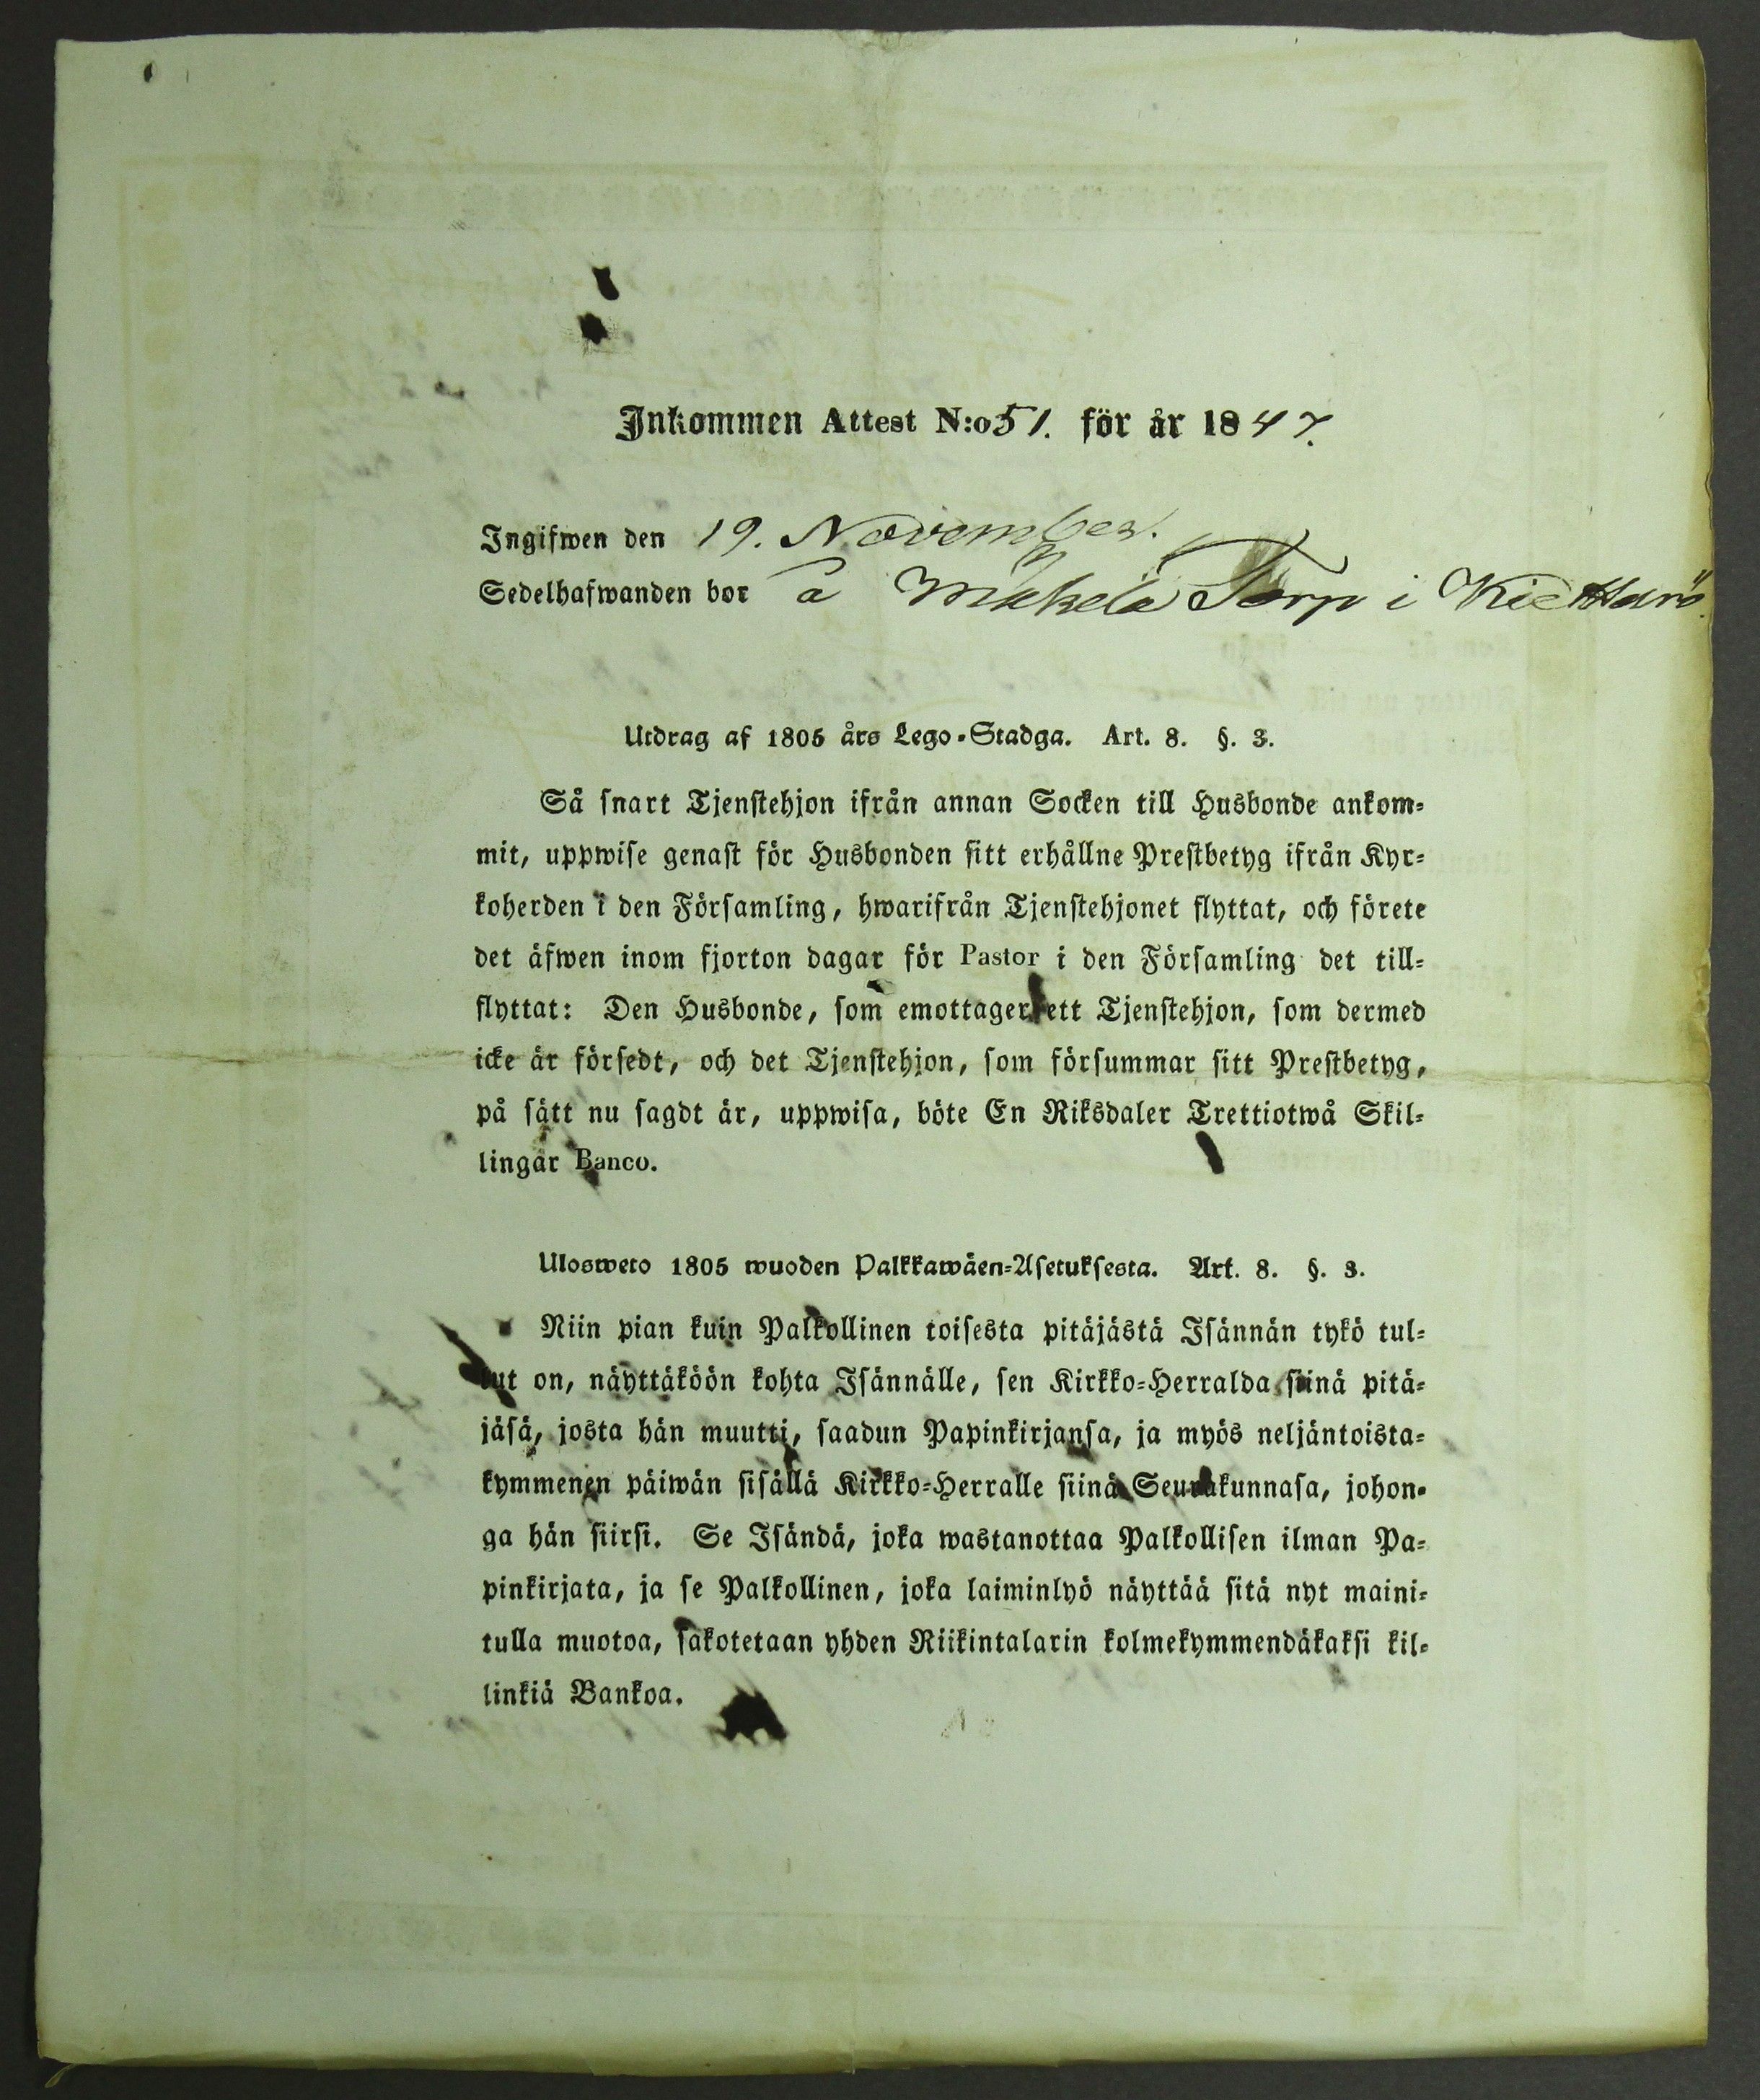 Inkommen Attest N:o 51. för år 1847.
Ingifwen den 19. November.
Sedelhafwanden bor å Mäkelä Torp i
Utdrag af 1805 års Lego-Stadga. Art. 8. §. 3.
Så snart Tjenstehjon ifrån annan Socken till Husbonde ankom-
mit, uppwise genast för Husbonden sitt erhållne Prestbetyg ifrån Kyr-
koherden i den Församling, hwarifrån Tjenstehjonet flyttat, och förete
det äfwen inom fjorton dagar för Pastor i den Församling det till-
flyttat: Den Husbonde, som emottager ett Tjenstehjon, som dermed
icke är försedt, och det Tjenstehjon, som försummar sitt Prestbetyg,
på sätt nu sagdt är, uppwisa, böte En Riksdaler Trettiotwå Skil-
lingar Banco.
Ulosweto 1805 wuoden Palkkawäen-Asetuksesta. Art. 8. §. 3.
Niin pian kuin Palkollinen toisesta pitäjästä Isännän tykö tul-
lut on, näyttäköön kohta Isännälle, sen Kirkko-Herralda siinä pitä-
jäsä, josta hän muutti, saadun Papinkirjansa, ja myös neljäntoista-
kymmenen päiwän sisällä Kirkko-Herralle siinä Seurakunnasa, johon-
ga hän siirsi. Se Isändä, joka wastanottaa Palkollisen ilman Pa-
pinkirjata, ja se Palkollinen, joka laiminlyö näyttää sitä nyt maini-
tulla muotoa, sakotetaan yhden Riikintalarin kolmekymmendäkaksi kil-
linkiä Bankoa.